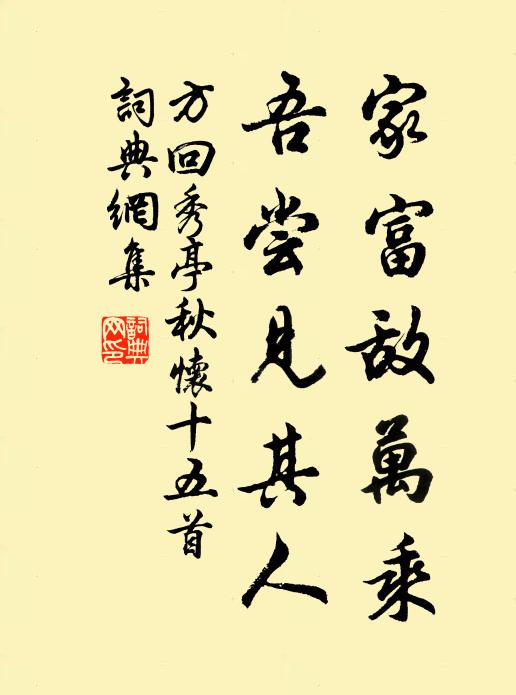 家富敌萬乘
吾尝見其人
方回秀亭秋懷十五首
詞典網集
詞典網印